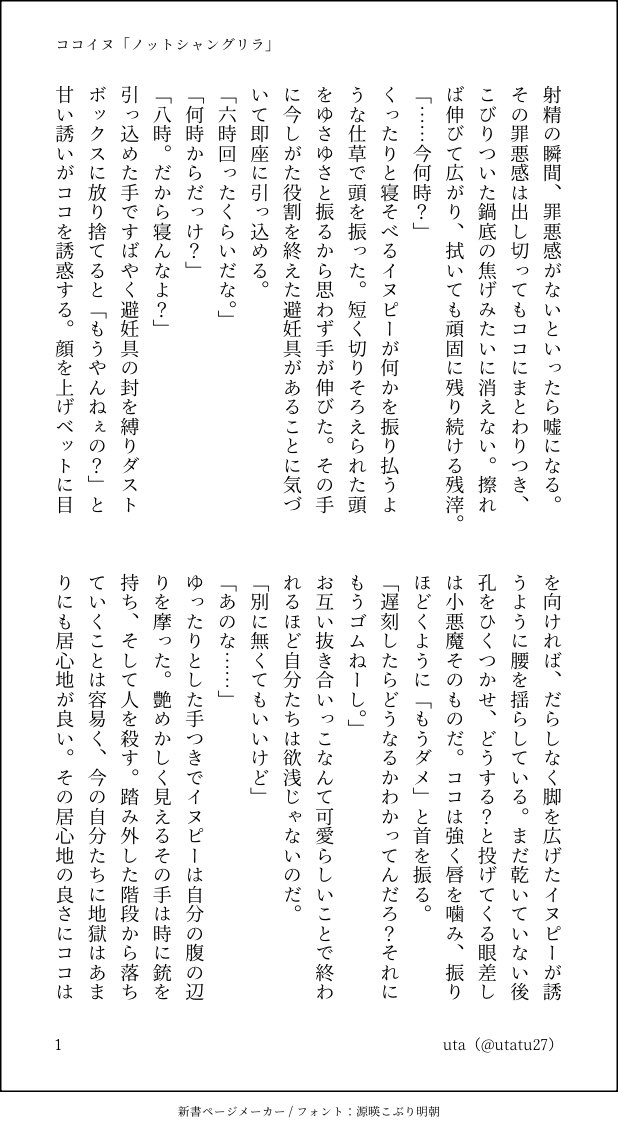 ココイヌ「ノットシャングリラ」
射精の瞬間、罪悪感がないといったら嘘になる。
その罪悪感は出し切ってもココにまとわりつき、
こびりついた鍋底の焦げみたいに消えない。擦れ
ば伸びて広がり、拭いても頑固に残り続ける残滓。
「……今何時？」
くったりと寝そべるイヌピーが何かを振り払うよ
うな仕草で頭を振った。短く切りそろえられた頭
をゆさゆさと振るから思わず手が伸びた。その手
に今しがた役割を終えた避妊具があることに気づ
いて即座に引っ込める。
「六時回ったくらいだな。」
「何時からだっけ？」
「八時。だから寝んなよ？」
引っ込めた手ですばやく避妊具の封を縛りダスト
ボックスに放り捨てると「もうやんねぇの？」と
甘い誘いがココを誘惑する。顔を上げベットに目
を向ければ、だらしなく脚を広げたイヌピーが誘
うように腰を揺らしている。まだ乾いていない後
孔をひくつかせ、どうする？と投げてくる眼差し
は小悪魔そのものだ。ココは強く唇を噛み、振り
ほどくように「もうダメ」と首を振る。
「遅刻したらどうなるかわかってんだろ？それに
もうゴムねーし。」
お互い抜き合いっこなんて可愛らしいことで終わ
れるほど自分たちは欲浅じゃないのだ。
「別に無くてもいいけど」
「あのな……」
ゆったりとした手つきでイヌピーは自分の腹の辺
りを摩った。艶めかしく見えるその手は時に銃を
持ち、そして人を殺す。踏み外した階段から落ち
ていくことは容易く、今の自分たちに地獄はあま
りにも居心地が良い。その居心地の良さにココは
1
uta（@utatu27）
新書ページメーカー / フォント：源暎こぶり明朝